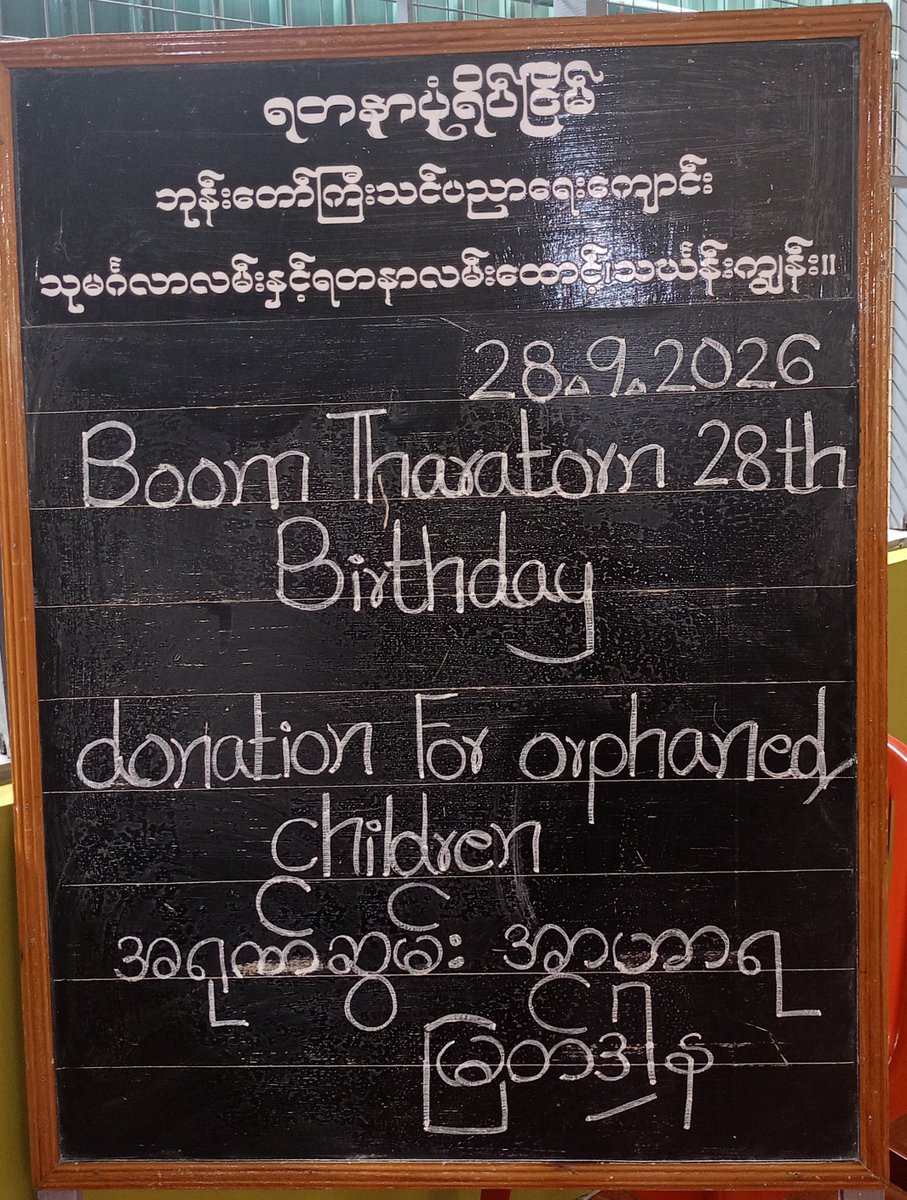 ရတနာပုံရိပ်ငြိမ်
ဘုန်းတော်ကြီးသင်ပညာရေးကျောင်း
သုမင်္ဂလာလမ်းနှင့်ရတနာလမ်းထောင့်၊သင်္ဃန်းကျွန်း။
28.9.2026
Boom Tharatorn 28th
Birthday
donation For orphaned
children
အရုဏ်ဆွမ်း အာဟာရ
မြတဒါန